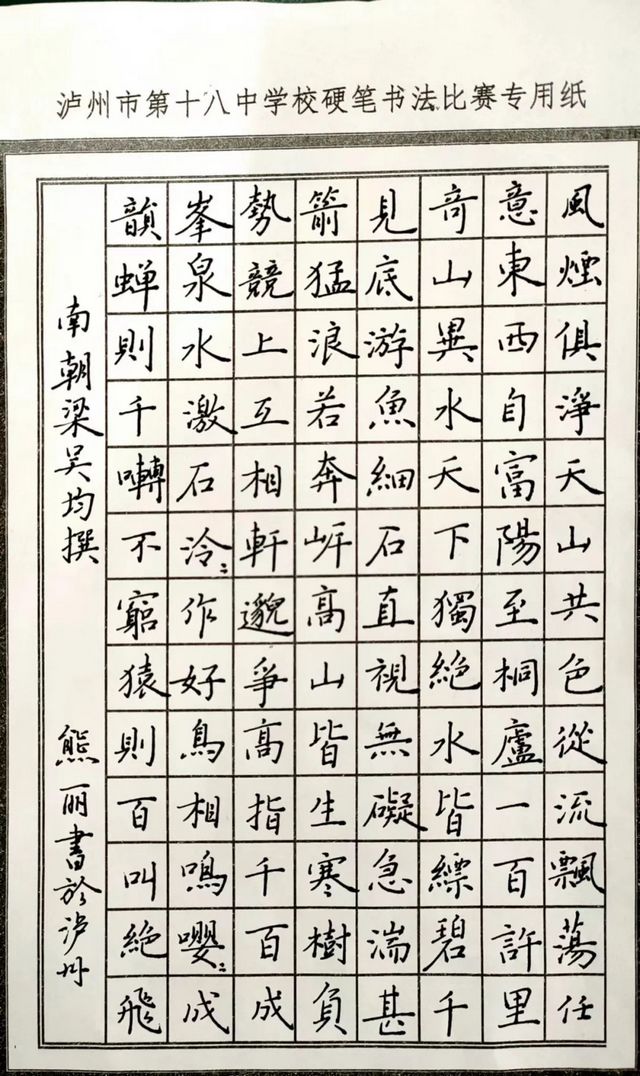 泸州市第十八中学校硬笔书法比赛专用纸
風煙俱淨天山共色從流飄蕩任
意東西自富陽至桐廬一百許里
奇山異水天下獨絶水皆縹碧千
見底游魚細石直視無礙急湍甚
箭猛浪若奔岍高山皆生寒樹負
勢競上互相軒邈爭高指千百成
峯泉水激石泠々作好鳥相鳴嚶々成
韻蝉則千囀不窮猿則百叫絶飛
南朝梁吴均撰 熊丽書於泸州